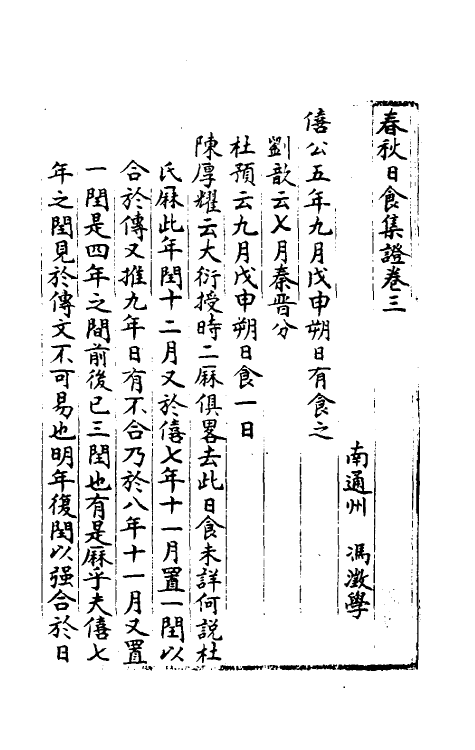 春秋日食集證卷三
南通州　馮澂學
僖公五年九月戊申朔日有食之
劉歆云七月秦晋分
杜預云九月戊申朔日食一日
陳厚耀云大衍授時二厤俱畧去此日食未詳何説杜
氏厤此年閏十二月又於僖七年十一月置一閏以
合於傳又推九年日有不合乃於八年十一月又置
一閏是四年之間前後已三閏也有是厤乎夫僖七
年之閏見於傳文不可易也明年復閏以强合於日